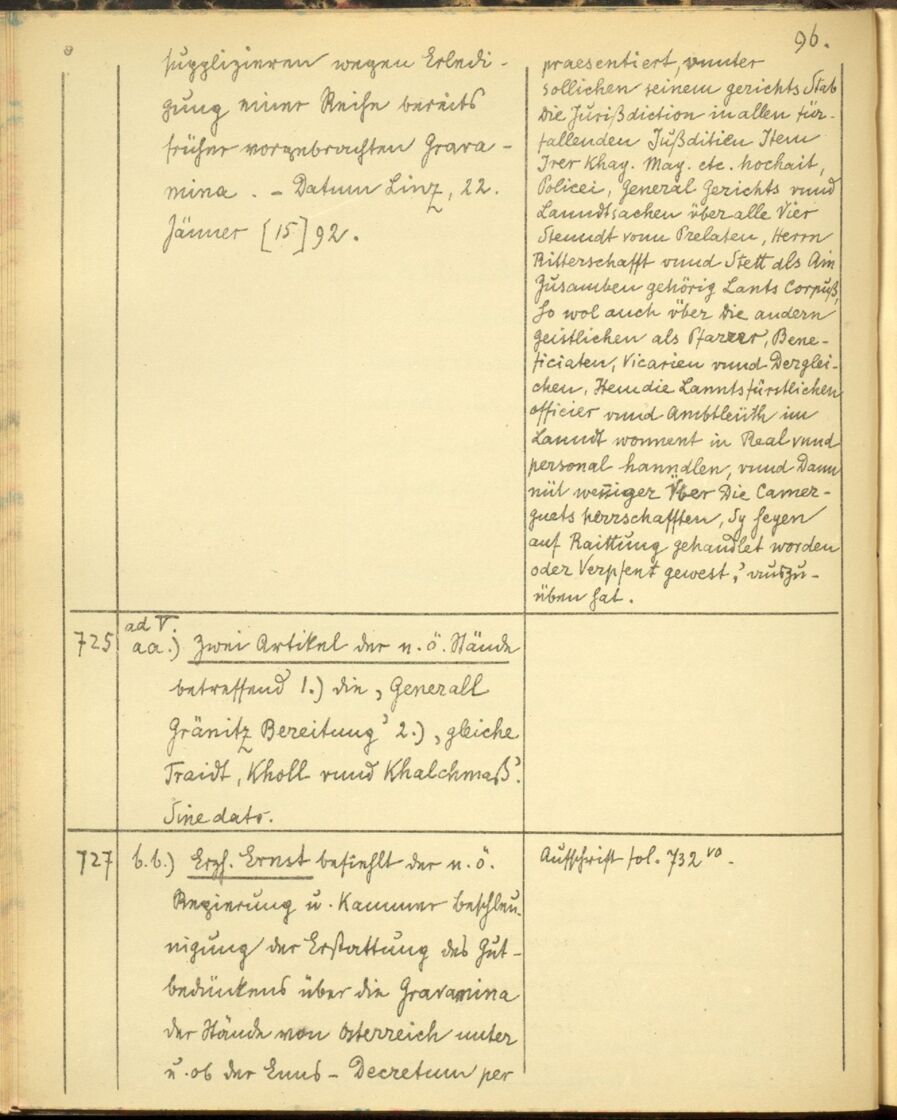 96.
supplizieren wegen Erledi-
gung einer Reihe bereits
früher vorgebrachten Grava-
mina. - Datum Linz, 22.
Jänner [15]92.
praesentiert, vunter
sollichen seinem gerichts Stab
die Jurißdiction in allen für-
fallenden Jußditien Item
Irer Khay. May. etc. hochait,
Policei, General Gerichts vnnd
Lanndtsachen über alle Vier
Stenndt vonn Prelaten, Herrn
Ritterschafft vnnd Stett als Ain
Zusamben gehörig Lants Corpuß,
so wol auch über die andern
geistlichen als Pfarrer, Bene-
ficiaten, Vicarien vnnd Dergglei-
chen, Item die Lanntsfürstlichen
officier vnnd Ambtleüth im
Lanndt wonnent in Real vnnd
personal hanndlen, vnnd Dann
nüt weniger Über Die Camer-
guets herrschafften, Sy seyen
auf Raittung gehandlet worden
oder Verpfent gewest,' auszu-
üben hat.
725 ad V.
aa.) Zwei Artikel der n. ö. Stände
betreffend 1.) die ‚Generall
Gränitz Bereitung' 2.) ‚gleiche
Traidt, Kholl vnnd Khalchmaß'.
Sine dato.
727 b.b.) Erzh. Ernst befiehlt der n. ö.
Regierung u. Kammer Beschleu-
nigung der Erstattung des Gut-
bedünkens über die Gravamina
der Stände von Österreich unter
u. ob der Enns - Decretum per
Aufschrift fol. 732 vo.